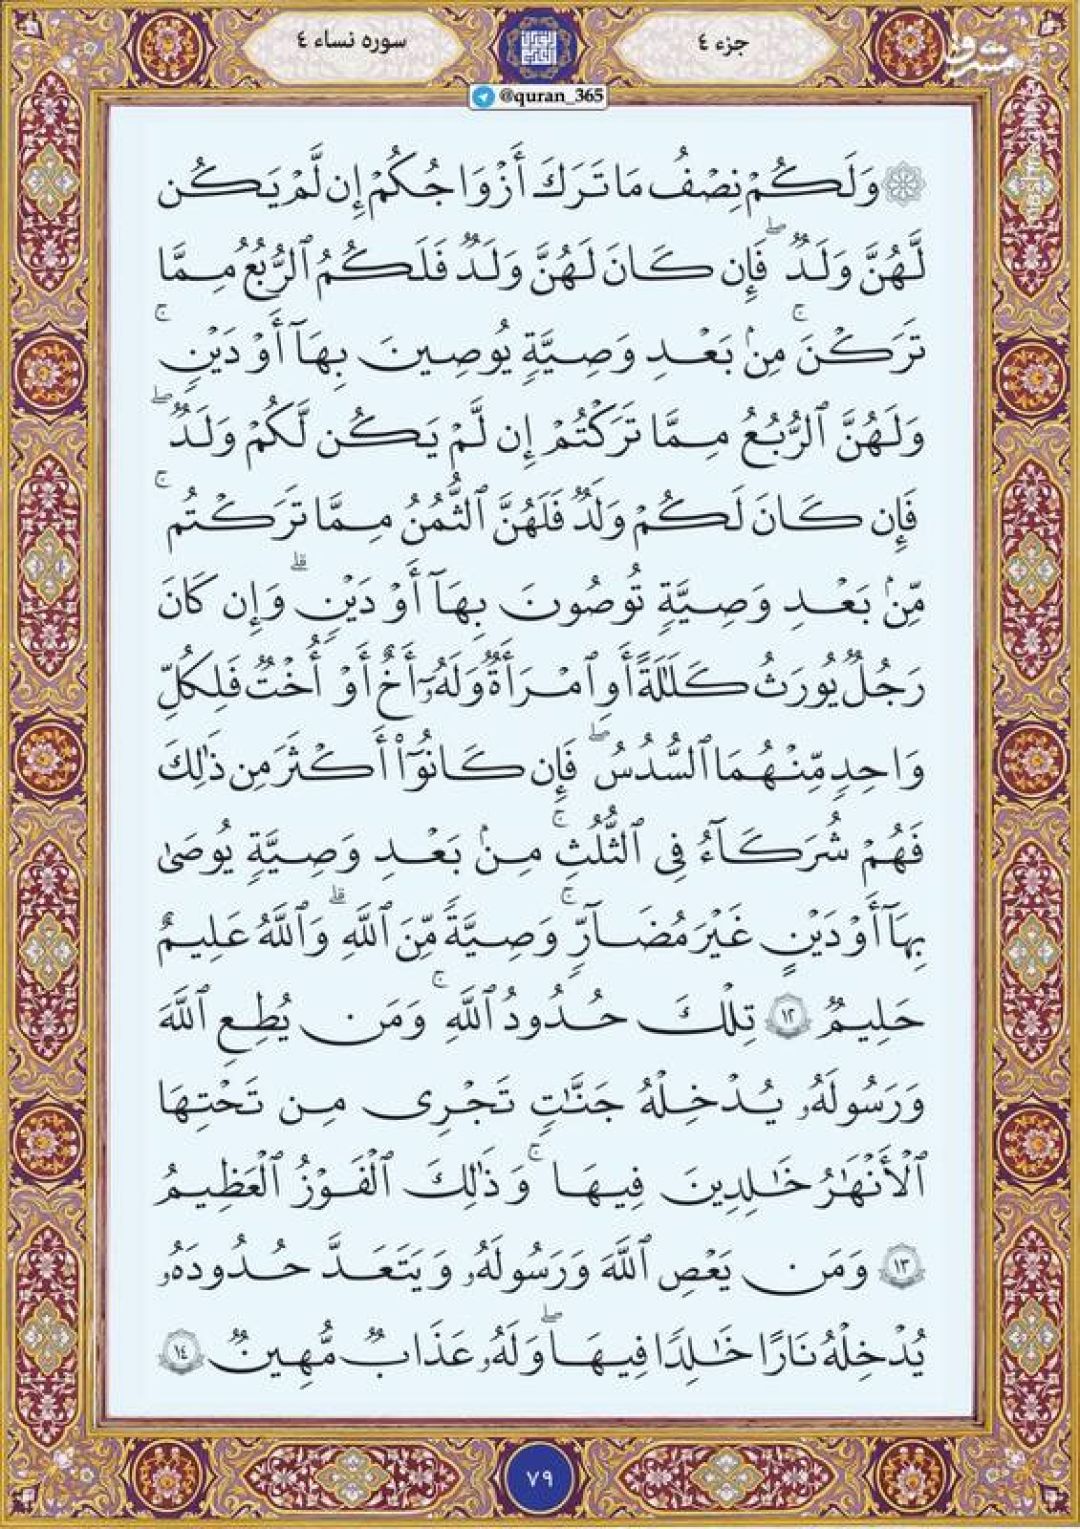 جزء ٤
سوره نساء ٤
@quran_365
وَلَكُمْ نِصْفُ مَا تَرَكَ أَزْوَاجُكُمْ إِن لَّمْ يَكُن
لَّهُنَّ وَلَدٌ ۖ فَإِن كَانَ لَهُنَّ وَلَدٌ فَلَكُمُ ٱلرُّبُعُ مِمَّا
تَرَكْنَ ۚ مِنۢ بَعْدِ وَصِيَّةٍ يُوصِينَ بِهَآ أَوْ دَيْنٍ ۚ
وَلَهُنَّ ٱلرُّبُعُ مِمَّا تَرَكْتُمْ إِن لَّمْ يَكُن لَّكُمْ وَلَدٌ ۖ
فَإِن كَانَ لَكُمْ وَلَدٌ فَلَهُنَّ ٱلثُّمُنُ مِمَّا تَرَكْتُم ۚ
مِّنۢ بَعْدِ وَصِيَّةٍ تُوصُونَ بِهَآ أَوْ دَيْنٍ ۗ وَإِن كَانَ
رَجُلٌ يُورَثُ كَلَـٰلَةً أَوِ ٱمْرَأَةٌ وَلَهُۥٓ أَخٌ أَوْ أُخْتٌ فَلِكُلِّ
وَاحِدٍ مِّنْهُمَا ٱلسُّدُسُ ۖ فَإِن كَانُوٓا۟ أَكْثَرَ مِن ذَٰلِكَ
فَهُمْ شُرَكَآءُ فِى ٱلثُّلُثِ ۚ مِنۢ بَعْدِ وَصِيَّةٍ يُوصَىٰ
بِهَآ أَوْ دَيْنٍ غَيْرَ مُضَآرٍّ ۚ وَصِيَّةً مِّنَ ٱللَّهِ ۗ وَٱللَّهُ عَلِيمٌ
حَلِيمٌ ١٢ تِلْكَ حُدُودُ ٱللَّهِ ۚ وَمَن يُطِعِ ٱللَّهَ
وَرَسُولَهُۥ يُدْخِلْهُ جَنَّـٰتٍ تَجْرِى مِن تَحْتِهَا
ٱلْأَنْهَـٰرُ خَـٰلِدِينَ فِيهَا ۚ وَذَٰلِكَ ٱلْفَوْزُ ٱلْعَظِيمُ
١٣ وَمَن يَعْصِ ٱللَّهَ وَرَسُولَهُۥ وَيَتَعَدَّ حُدُودَهُۥ
يُدْخِلْهُ نَارًا خَـٰلِدًا فِيهَا ۖ وَلَهُۥ عَذَابٌ مُّهِينٌ ١٤
٧٩